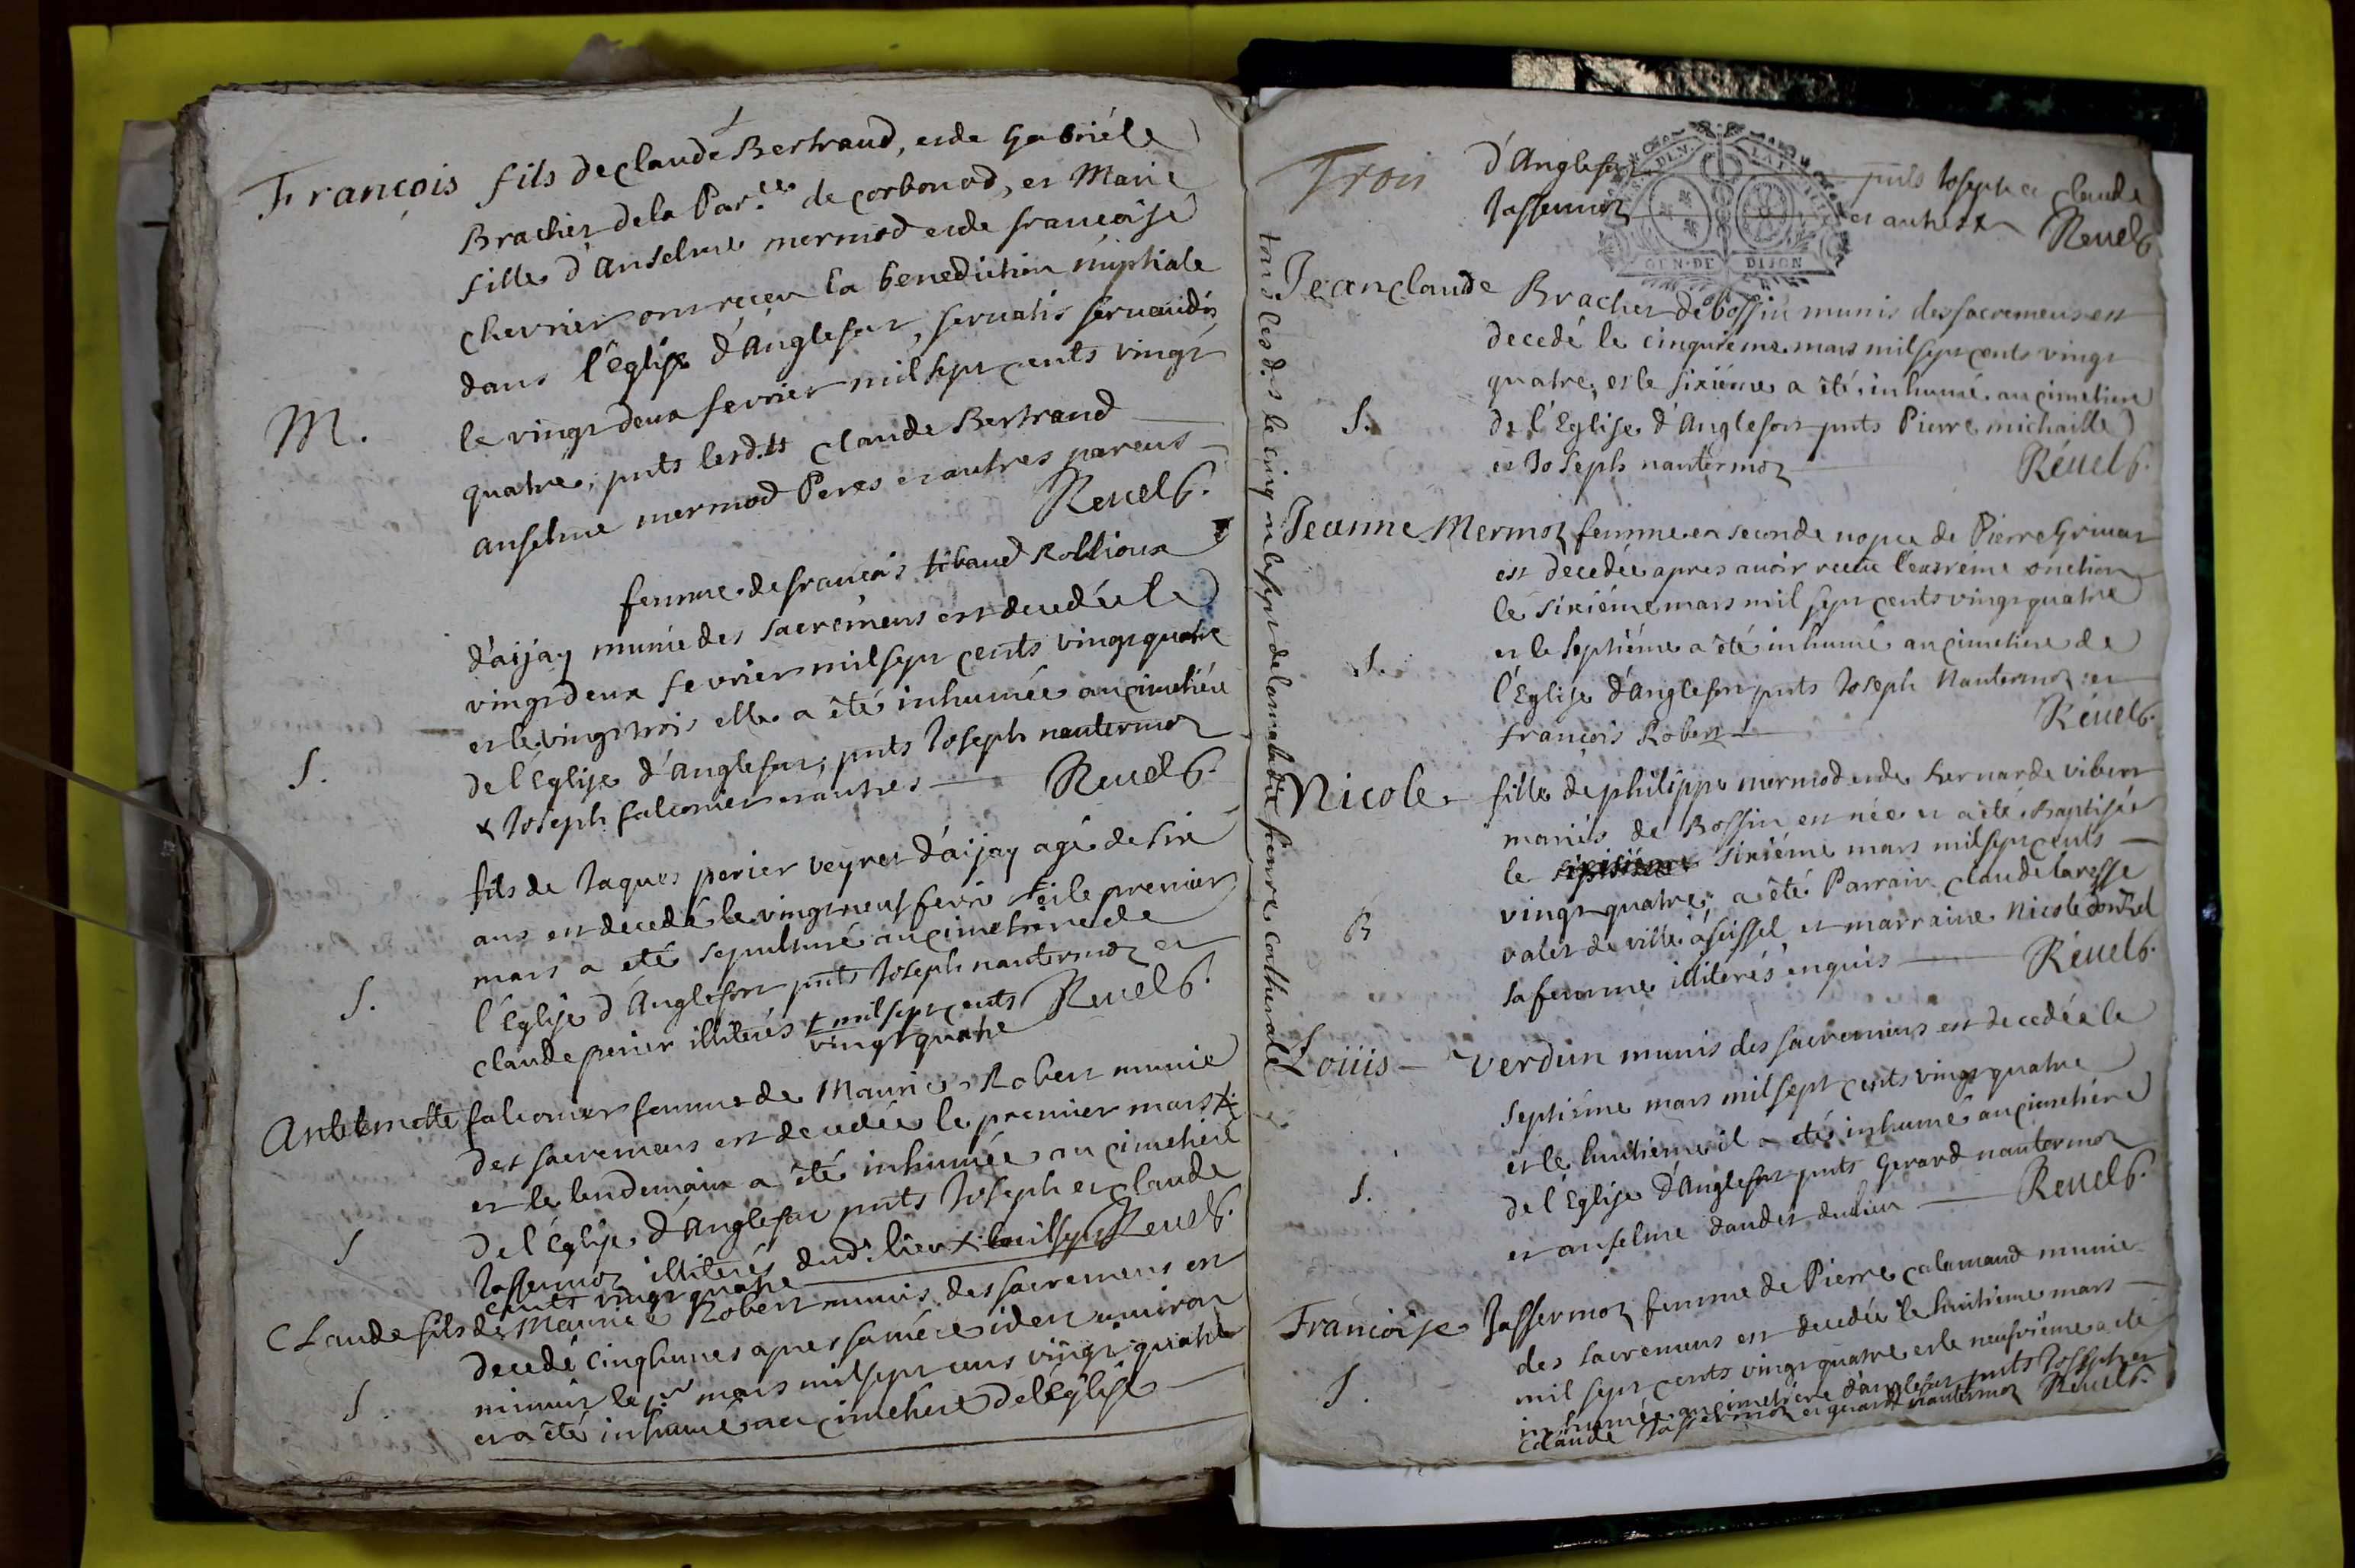 François fils de claude Bertrand, et de Gabriéle
Bracher de la Par.sse de corbonod, et Marie
fille d'Anselme mermod et de françoise
chevrier ont reçeu la benediction nuptiale
dans l'Eglise d'Anglefort, servatis servandis
le vingt deux fevrier mil sept cents vingt
M.
quatre, pnts lesd.ts Claude Bertrand
anselme mermod Peres et autres parens
Revel C.
femme de françois tibaud Rollioux
d'aijay munie des sacrémens est decedée le
vingt deux fevrier mil sept cents vingt quatre
et le vingt trois elle a été inhumée au cimetiére
S.
de l'Eglise d'Anglefort, pnts Joseph nantermoz
& Joseph falconier et autres Revel C.
fils de Jaques perier veyret d'aijay agé de six
ans est decedé le vingt neuf fevr. et le premier
mars a été sepulturé au cimetiere de
S.
l'Eglise d'Anglefort pnts Joseph nantermoz et
claude perier illiterés + mil sept cents Revel C.
vingt quatre
Anthelmette falconier femme de Maurice Robert munie
des sacremens est decedée le premier mars +
et le lendemain a été inhumée au cimetiere
S
de l'Eglise d'Anglefort pnts Joseph et claude
Jassermoz illiterés dud. lieu + mil sept Revel C.
cents vingt quatre
Claude fils de Maurice Robert munis des sacremens est
decedé cinq heures apres sa mére idest environ
S.
minuit le p.er mars mil sept cens vingt quatre
et a été inhumé au cimetiere de l'Eglise
Trois
d'Anglefort pnts Joseph et Claude
Jassermoz et autres Revel C
GEN. DE DIJON
tous les d. le cinq au sept de la maladie fievre catherrale
Jean claude Bracher de bossin munis des sacremens est
decedé le cinquiéme mars mil sept cents vingt
quatre, et le sixiéme a été inhumé au cimetiere
S.
de l'Eglise d'Anglefort pnts Pierre michaille
et Joseph nantermoz Revel C.
Jeanne Mermoz femme en seconde nopce de Pierre Grinat
est decedée apres avoir receu l'extréme onction
le sixiéme mars mil sept cents vingt quatre
et le septiéme a été inhumé au cimetiere de
S.
l'Eglise d'Anglefort pnts Joseph Nantermoz et
François Robert Revel C.
Nicole fille de philippe mermod et de Bernarde vibert
mariés de Bossin est née et a été Baptisée
le sixiéme mars mil sept cents
B
vingt quatre; a été Parrain claude laresse
valet de ville a seissel et marraine Nicole
sa femme illiterés enquis Revel C.
Loüis Verdun munis des sacremens est decedé le
septiéme mars mil sept cents vingt quatre
et le huitiéme il a étés inhumé au cimetiére
S.
de l'Eglise d'Anglefort pnts Gerard nantermoz
et anselme dandet dud. lieu Revel C.
Françoise Jassermoz femme de Pierre calamand munie
des sacremens est decedée le huitieme mars
mil sept cents vingt quatre et le neufviéme a été
S.
inhumée au cimetiére d'anglefort pnts Joseph et
Claude Jassermoz et gerard nantermoz Revel C.